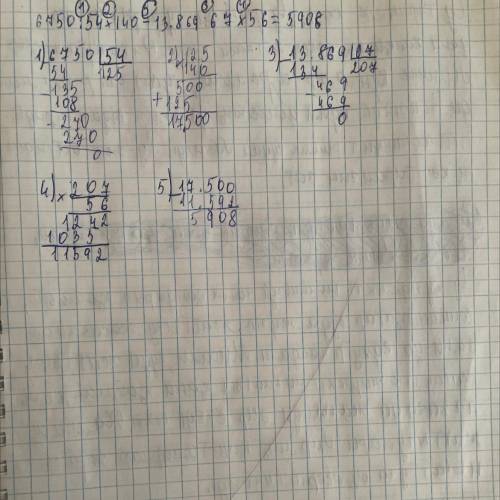 6750:54×140-13.869:67×56=5908
1) 6750 54
54 125
135
108
270
270
0
2) 125
× 140
500
+ 125
17500
3) 13.869 67
134 207
469
469
0
4) × 207
56
1242
1035
11592
5) 17.500
11.592
5908